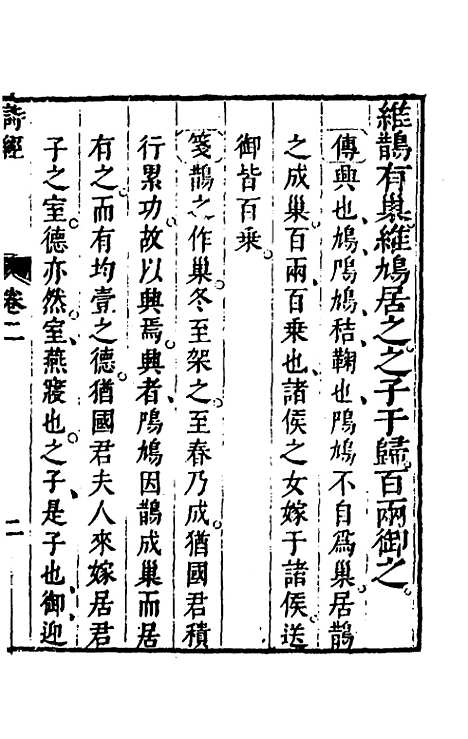 維鵲有巢維鳩居之之子于歸百兩御之
傳興也鳩鳲鳩秸鞠也鳲鳩不自爲巢居鵲
之成巢百兩百乗也諸侯之女嫁于諸侯送
御皆百乗
箋鵲之作巢冬至架之至春乃成猶國君積
行累功故以興焉興者鳲鳩因鵲成巢而居
有之而有均壹之德猶國君夫人來嫁居君
子之室德亦然室燕寢也之子是子也御迎
詩經 卷二 二